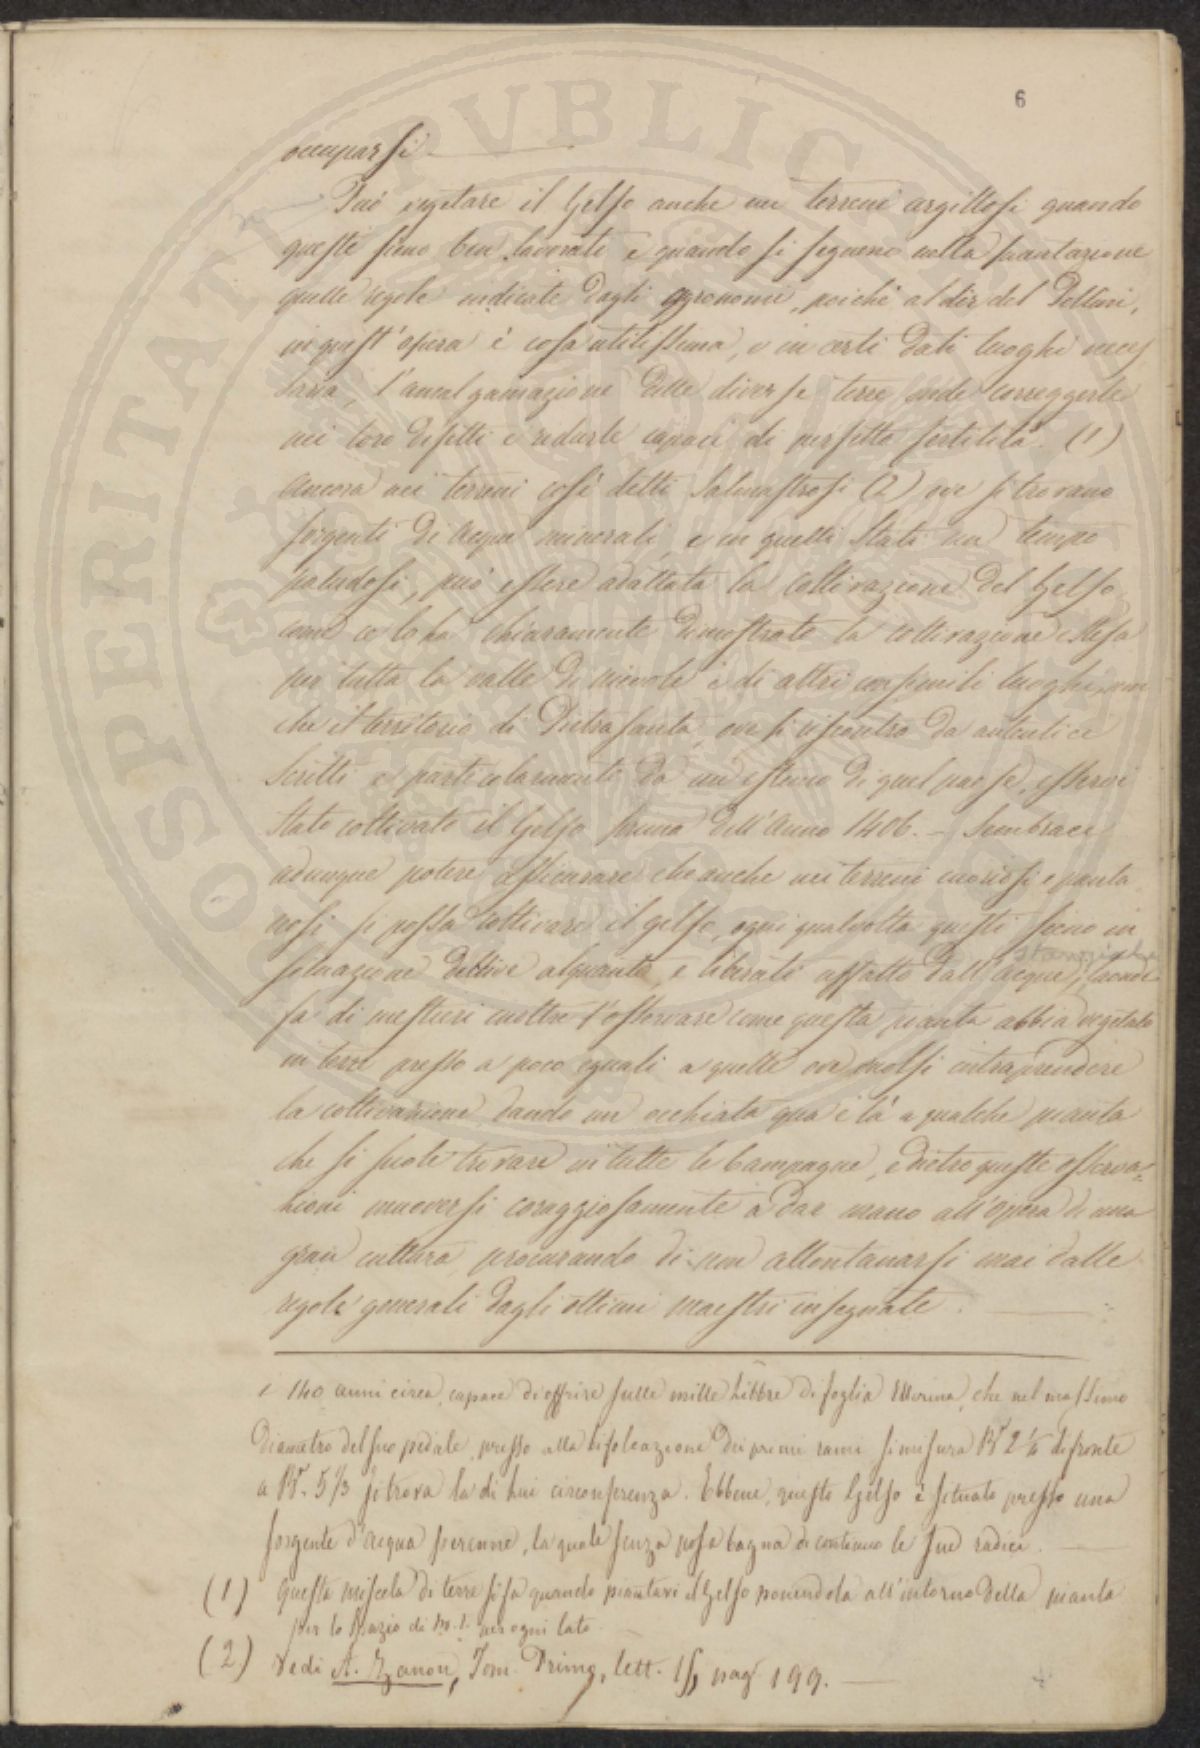 6
occuparsi
Può vegetare il Gelso anche nei terreni argillosi quando
queste sieno ben lavorati e quando si seguono nella piantazione
quelle regole indicate dagli agronomi, poichè al dir del Dottori,
in quest'opera è cosa utilissima, e in certi dati luoghi neces
saria, l'amalgamazione delle diverse terre onde correggerle
nei loro difetti e ridurle capaci di perfetta fertilità. (1)
Ancora nei terreni così detti Salmastrosi (2) ove si trovano
sorgenti di Acque minerali, e in quelli Stati un tempo
paludosi, può essere adattata la coltivazione del Gelso
come ce lo ha chiaramente dimostrato la coltivazione estesa
per tutta la valle di nievole e di altri consimili luoghi, non
che il territorio di Pietrasanta, ove si riscontra da autentici
Scritti e particolarmente da un estimo di quel paese, esservi
Stato coltivato il Gelso prima dell'Anno 1406. — Sembraci
adunque potere assicurare che anche nei terreni cuoriosi e panta
nosi si possa coltivare il gelso, ogni qualvolta questi sieno in
situazione declive alquanto, e liberati affatto dall'acque stagnanti;
fa di mestieri inoltre l'osservare come questa pianta abbia vegetato
in terre presso a poco eguali a quelle ove vuolsi intraprendere
la coltivazione, dando un occhiata qua e là a qualche pianta
che si suole trovare in tutte le Campagne, e dietro queste osserva=
zioni muoversi coraggiosamente a dar mano all'opera di una
gran cultura, procurando di non allontanarsi mai dalle
regole generali dagli ottimi maestri insegnate.
i 140 anni circa, capace di offrire sulle mille Libbre di foglia, che nel massimo
Diametro del suo pedale, presso alla bifolcazione dei primi rami si misura Br 2 ½ di fronte
a Br. 5 ⅓ si trova la di lui circonferenza. Ebbene, questo Gelso è situato presso una
sorgente d'acqua perenne, la quale senza posa bagna di continuo le sue radici.
(1) Questa miscela di terre si fa quando piantasi il Gelso ponendola all'intorno della pianta
per lo spazio di m. 1. per ogni lato.
(2) Vedi A. Zanon, Tom. Primo, lett. 15, pag. 199.